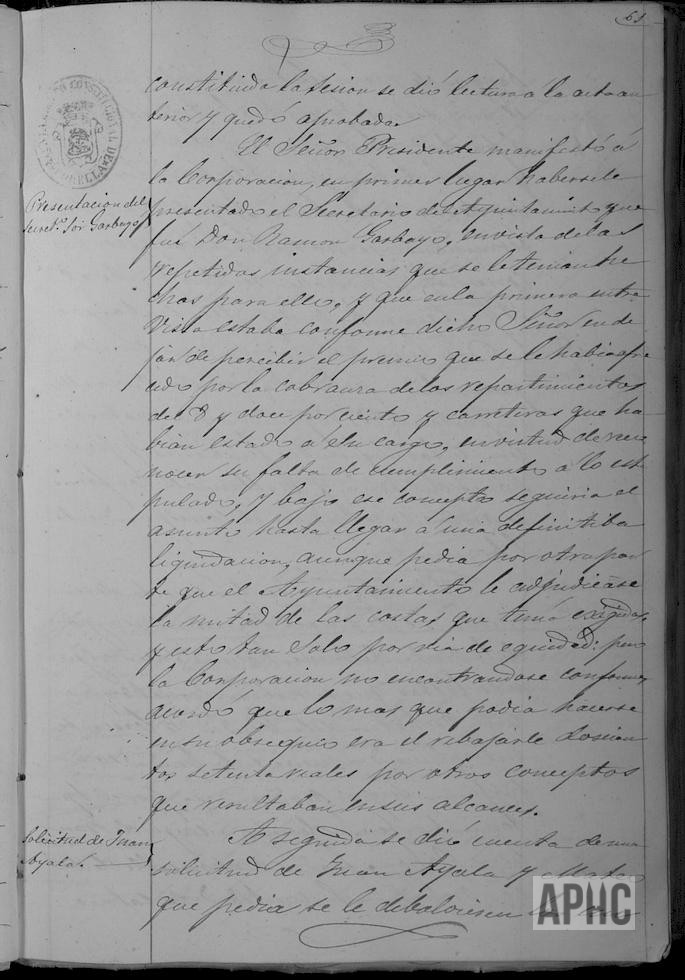 61
constituida la sesion se dió lectura a la acta an
terior y quedó aprobada.
El Señor Presidente manifestó á
la Corporacion, en primer lugar habersele
Presentacion del
Secret.º Sór Garbayo
presentado el Secretario del Ayuntamiento que
fué Don Ramon Garbayo, en vista de las
repetidas instancias que se le tenian he
chas para ello, y que en la primera entre
vista estaba conforme dicho Señor en de
jar de percibir el premio que se le habia ofre
cido por la cobranza de los repartimientos
del 8 y doce por ciento y carreteras que ha
bian estado á su cargo, en virtud de reco
nocer su falta de cumplimiento á lo esti
pulado, y bajo ese concepto seguiria el
asunto hasta llegar á una definitiba
liquidacion, aunque pedia por otra par
te que el Ayuntamiento le adjudicase
la mitad de las costas que tenia exigidas,
y esto tan solo por via de equidad: pero
la Corporacion no encontrandose conforme,
acordó que lo mas que podia hacerse
en su obsequio era el rebajarle doscien
tos setenta reales por otros conceptos
que resultaban en sus alcances.
Solicitud de Juan
Ayala.
A seguida se dió cuenta de una
solicitud de Juan Ayala y Mateo
que pedia se le debalviesen
APHC